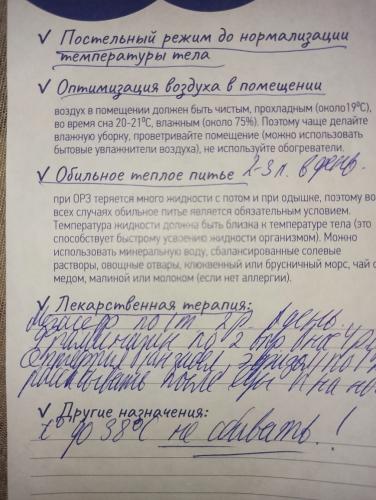 ✓ Постельный режим до нормализации
температуры тела
✓ Оптимизация воздуха в помещении
воздух в помещении должен быть чистым, прохладным (около19⁰С),
во время сна 20-21⁰С, влажным (около 75%). Поэтому чаще делайте
влажную уборку, проветривайте помещение (можно использовать
бытовые увлажнители воздуха), не используйте обогреватели.
✓ Обильное теплое питье 2-3 л. в день.
при ОРЗ теряется много жидкости с потом и при одышке, поэтому во
всех случаях обильное питье является обязательным условием.
Температура жидкости должна быть близка к температуре тела (это
способствует быстрому усвоению жидкости организмом). Можно
использовать минеральную воду, сбалансированные солевые
растворы, овощные отвары, клюквенный или брусничный морс, чай с
медом, малиной или молоком (если нет аллергии).
✓ Лекарственная терапия:
по 1т. 2р. в день.
по 2
по 1
рассасывать после еды на но
✓ Другие назначения:
t° до 38°С не сбивать!